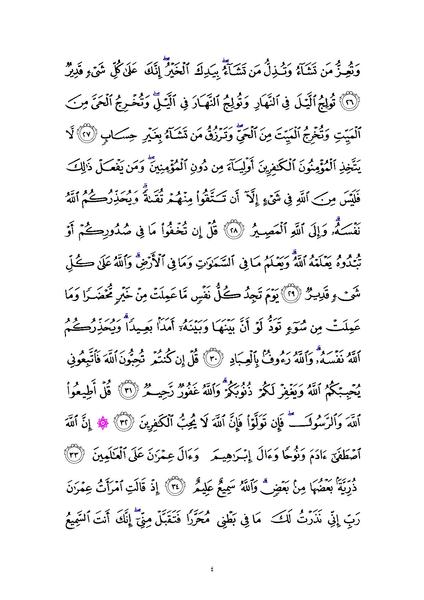 وَتُعِزُّ مَن تَشَآءُ وَتُذِلُّ مَن تَشَآءُ ۖ بِيَدِكَ ٱلْخَيْرُ ۖ إِنَّكَ عَلَىٰ كُلِّ شَىْءٍ قَدِيرٌ
۝٢٦ تُولِجُ ٱلَّيْلَ فِى ٱلنَّهَارِ وَتُولِجُ ٱلنَّهَارَ فِى ٱلَّيْلِ ۖ وَتُخْرِجُ ٱلْحَىَّ مِنَ
ٱلْمَيِّتِ وَتُخْرِجُ ٱلْمَيِّتَ مِنَ ٱلْحَىِّ ۖ وَتَرْزُقُ مَن تَشَآءُ بِغَيْرِ حِسَابٍ ۝٢٧ لَّا
يَتَّخِذِ ٱلْمُؤْمِنُونَ ٱلْكَـٰفِرِينَ أَوْلِيَآءَ مِن دُونِ ٱلْمُؤْمِنِينَ ۖ وَمَن يَفْعَلْ ذَٰلِكَ
فَلَيْسَ مِنَ ٱللَّهِ فِى شَىْءٍ إِلَّآ أَن تَتَّقُوا۟ مِنْهُمْ تُقَىٰةً ۗ وَيُحَذِّرُكُمُ ٱللَّهُ
نَفْسَهُۥ ۗ وَإِلَى ٱللَّهِ ٱلْمَصِيرُ ۝٢٨ قُلْ إِن تُخْفُوا۟ مَا فِى صُدُورِكُمْ أَوْ
تُبْدُوهُ يَعْلَمْهُ ٱللَّهُ ۗ وَيَعْلَمُ مَا فِى ٱلسَّمَـٰوَٰتِ وَمَا فِى ٱلْأَرْضِ ۗ وَٱللَّهُ عَلَىٰ كُلِّ
شَىْءٍ قَدِيرٌ ۝٢٩ يَوْمَ تَجِدُ كُلُّ نَفْسٍ مَّا عَمِلَتْ مِنْ خَيْرٍ مُّحْضَرًا وَمَا
عَمِلَتْ مِن سُوٓءٍ تَوَدُّ لَوْ أَنَّ بَيْنَهَا وَبَيْنَهُۥٓ أَمَدًۢا بَعِيدًا ۗ وَيُحَذِّرُكُمُ
ٱللَّهُ نَفْسَهُۥ ۗ وَٱللَّهُ رَءُوفٌۢ بِٱلْعِبَادِ ۝٣٠ قُلْ إِن كُنتُمْ تُحِبُّونَ ٱللَّهَ فَٱتَّبِعُونِى
يُحْبِبْكُمُ ٱللَّهُ وَيَغْفِرْ لَكُمْ ذُنُوبَكُمْ ۗ وَٱللَّهُ غَفُورٌ رَّحِيمٌ ۝٣١ قُلْ أَطِيعُوا۟
ٱللَّهَ وَٱلرَّسُولَ ۖ فَإِن تَوَلَّوْا۟ فَإِنَّ ٱللَّهَ لَا يُحِبُّ ٱلْكَـٰفِرِينَ ۝٣٢ ۞ إِنَّ ٱللَّهَ
ٱصْطَفَىٰٓ ءَادَمَ وَنُوحًا وَءَالَ إِبْرَٰهِيمَ وَءَالَ عِمْرَٰنَ عَلَى ٱلْعَـٰلَمِينَ ۝٣٣
ذُرِّيَّةًۢ بَعْضُهَا مِنۢ بَعْضٍ ۗ وَٱللَّهُ سَمِيعٌ عَلِيمٌ ۝٣٤ إِذْ قَالَتِ ٱمْرَأَتُ عِمْرَٰنَ
رَبِّ إِنِّى نَذَرْتُ لَكَ مَا فِى بَطْنِى مُحَرَّرًا فَتَقَبَّلْ مِنِّىٓ ۖ إِنَّكَ أَنتَ ٱلسَّمِيعُ
٤